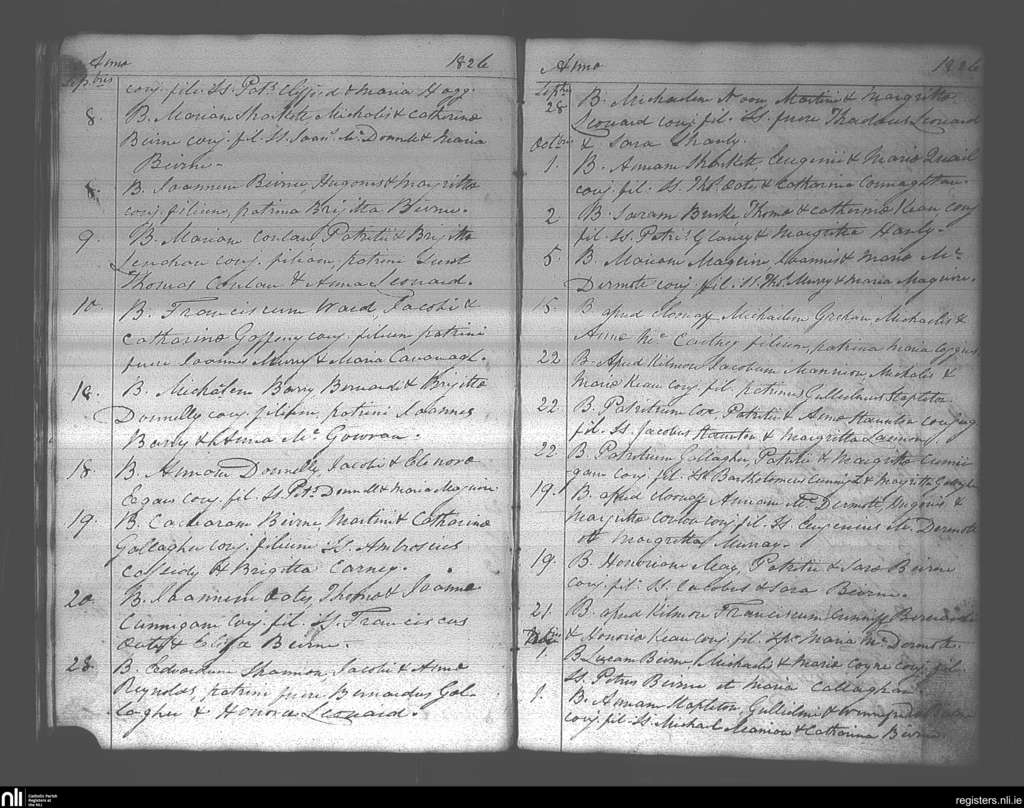 Anno 1826
Septbris
conj. fili. Ss. Patk. & Maria Hogg.
8. B. Mariam Markett Michalis & Catherina
Beirne conj. fil. Ss. Joans. Mc Donnell & Maria
Beirne.
8. B. Joannem Beirne, Hugonis & Margritta
conj. filium, patrina Brigitta Beirne.
9. B. Mariam Conlan, Patritii & Brigitta
Lenehan conj. filiam, patrini sunt
Thomas Conlan & Anna Leonard.
10. B. Franciscum Ward, Jacobi &
Catharina Gaffeny conj. filium patrini
fuere Joannes Murry & Maria Cavanagh.
18. B. Michalem Barry Bernardi & Brigitta
Donnelly conj. filium, patrini Joannes
Barry & Anna Mc Gowran.
18. B. Annam Donnelly, Jacobi & Elenora
Egan conj. fil. Ss. Patk. Donnell & Maria Maguire
19. B. Beirne, Martini & Catharina
Gallagher conj. filium Ss. Ambrosius
Cassidy & Brigitta Carney.
20. B. Joannem Oates, Thoma & Joanna
Cunnigam conj. fil. Ss. Franciscus
Oats & Elisa Beirne.
28. B. Edwardum Shannon, Jacobi & Anna
Reynolds, patrini fuere Bernardus Gal-
lagher & Honora Leonard.
Anno 1826
Septr
28 B. Michaelem Noon, Martini & Margritta
Leonard conj. fil. Ss. fuere Thaddeus Leonard
Octbris & Sara Shanly.
1. B. Annam Markett Eugenii & Maria Quail
conj. fil. Ss. Ths. Oats & Catharina Connaghtan.
2 B. Saram Burke Thoma & Catherina Kean conj
fil. Ss. Patri. Glancy & Margritta Hanly.
5 B. Mariam Maguire, Joannis & Maria Mc
Dermott conj. fil. Ss. Ths. Murry & Maria Maguire.
15. B. apud Cloonaff Michaelem Grehan Michaelis &
Anna Mc Cartney filium, patrina Maria
22 B. Apud Kilmore Jacobum Mannion, Michalis &
Maria Kean conj. fil. patrinus Gullielmus Stapleton.
22. B. Patritium Cox, Patritii & Anna Haunton conjug
fil. Ss. Jacobus Haunton & Margritta Lannon
22. B. Patritium Gallagher, Patritii & Margritta Cunni
gam conj. fil. Ss. Bartholomeus Cunnigh & Margritta
19. B. apud Cloonaff Annam Mc Dermott, Hugonis &
Margritta conj. fil. Ss. Eugenius Mc Dermott
et Margritta Murray.
19. B. Honoriam May, Patritii & Sara Beirne
conj. fil. Ss. Jacobus & Sara Beirne.
21 B. apud Kilmore Franciscum Cunniff Bernardi
& Honoria Kean conj. fil. Maria Mc Dermott.
1 B. Lucam Beirne Michaelis & Maria Coyne conj. fil.
Ss. Petrus Beirne et Maria Callaghan.
1. B. Annam Stapleton, Gullielmi & Winnefreda
conj. fil. Ss. Michael Manion & Catharina Beirne.
nli Catholic Parish
Registers at
the NLI
registers.nli.ie